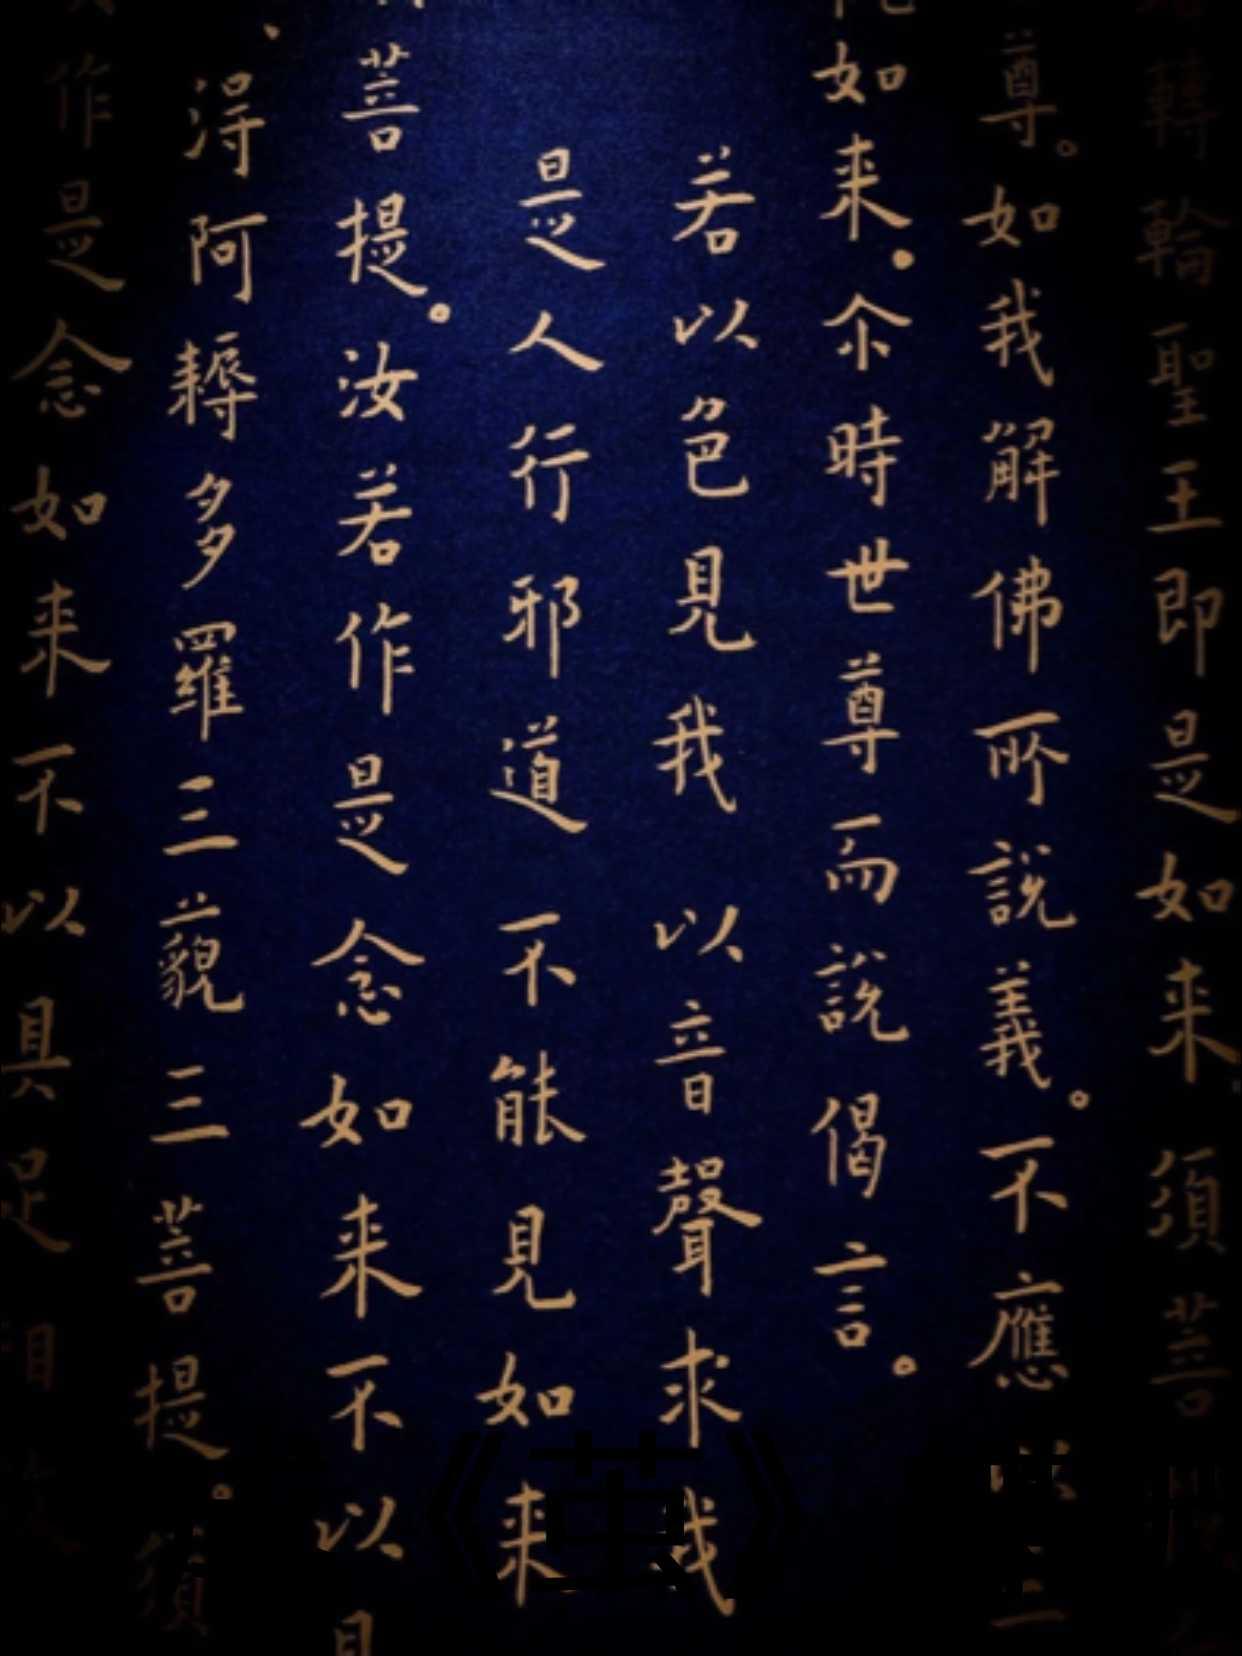 轉輪聖王即是如来須菩
尊。如我解佛所説義。不應以三
如来。尒時世尊而説偈言。
若以色見我 以音聲求我
是人行邪道 不能見如来
菩提。汝若作是念如来不以具
、得阿耨多羅三藐三菩提。須
作是念如来不以具足相故
《茧》